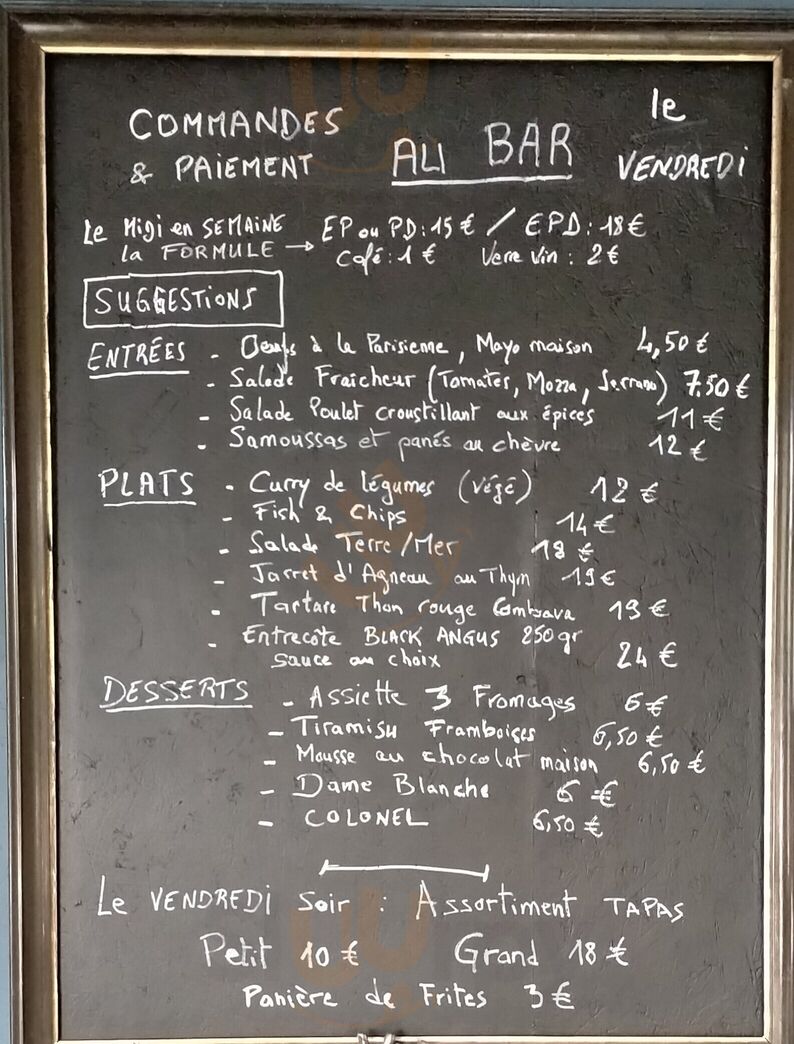 COMMANDES & PAIEMENT AU BAR le VENDREDI
Le Midi en SEMAINE la FORMULE → EP ou PD : 15 € / EPD : 18 €
Café : 1 € Verre Vin : 2 €
SUGGESTIONS
ENTRÉES - Oeufs à la Parisienne, Mayo maison 4,50 €
- Salade Fraîcheur (Tomates, Mozza, Serrano) 7.50 €
- Salade Poulet croustillant aux épices 11 €
- Samoussas et panés au chèvre 12 €
PLATS - Curry de légumes (végé) 12 €
- Fish & Chips 14 €
- Salade Terre/Mer 18 €
- Jarret d'Agneau au Thym 19 €
- Tartare Thon rouge Combava 19 €
- Entrecote BLACK ANGUS 250 gr
sauce au choix 24 €
DESSERTS - Assiette 3 Fromages 6 €
- Tiramisu Framboises 6,50 €
- Mousse au chocolat maison 6,50 €
- Dame Blanche 6 €
- COLONEL 6,50 €
Le VENDREDI Soir : Assortiment TAPAS
Petit 10 € Grand 18 €
Panière de Frites 3 €